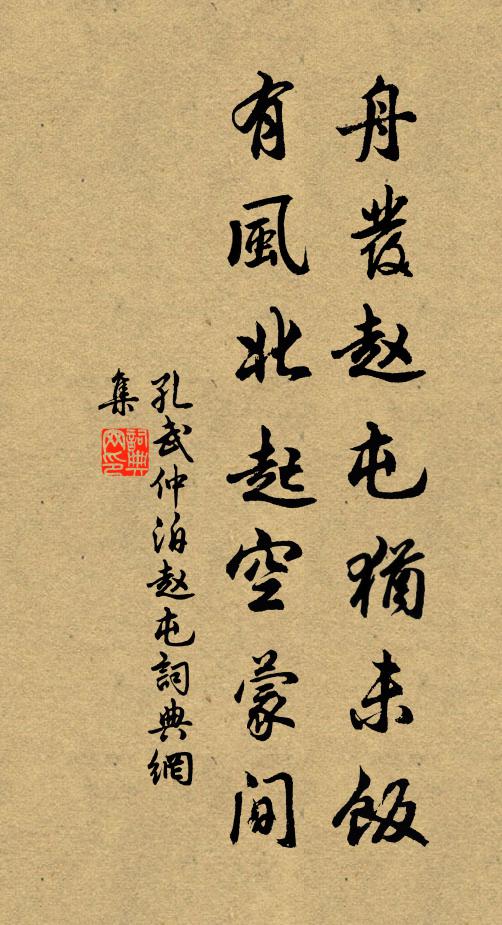 舟發赵屯猶未飯
有風北起空蒙间
孔武仲泊赵屯詞典網
集
詞典
网印